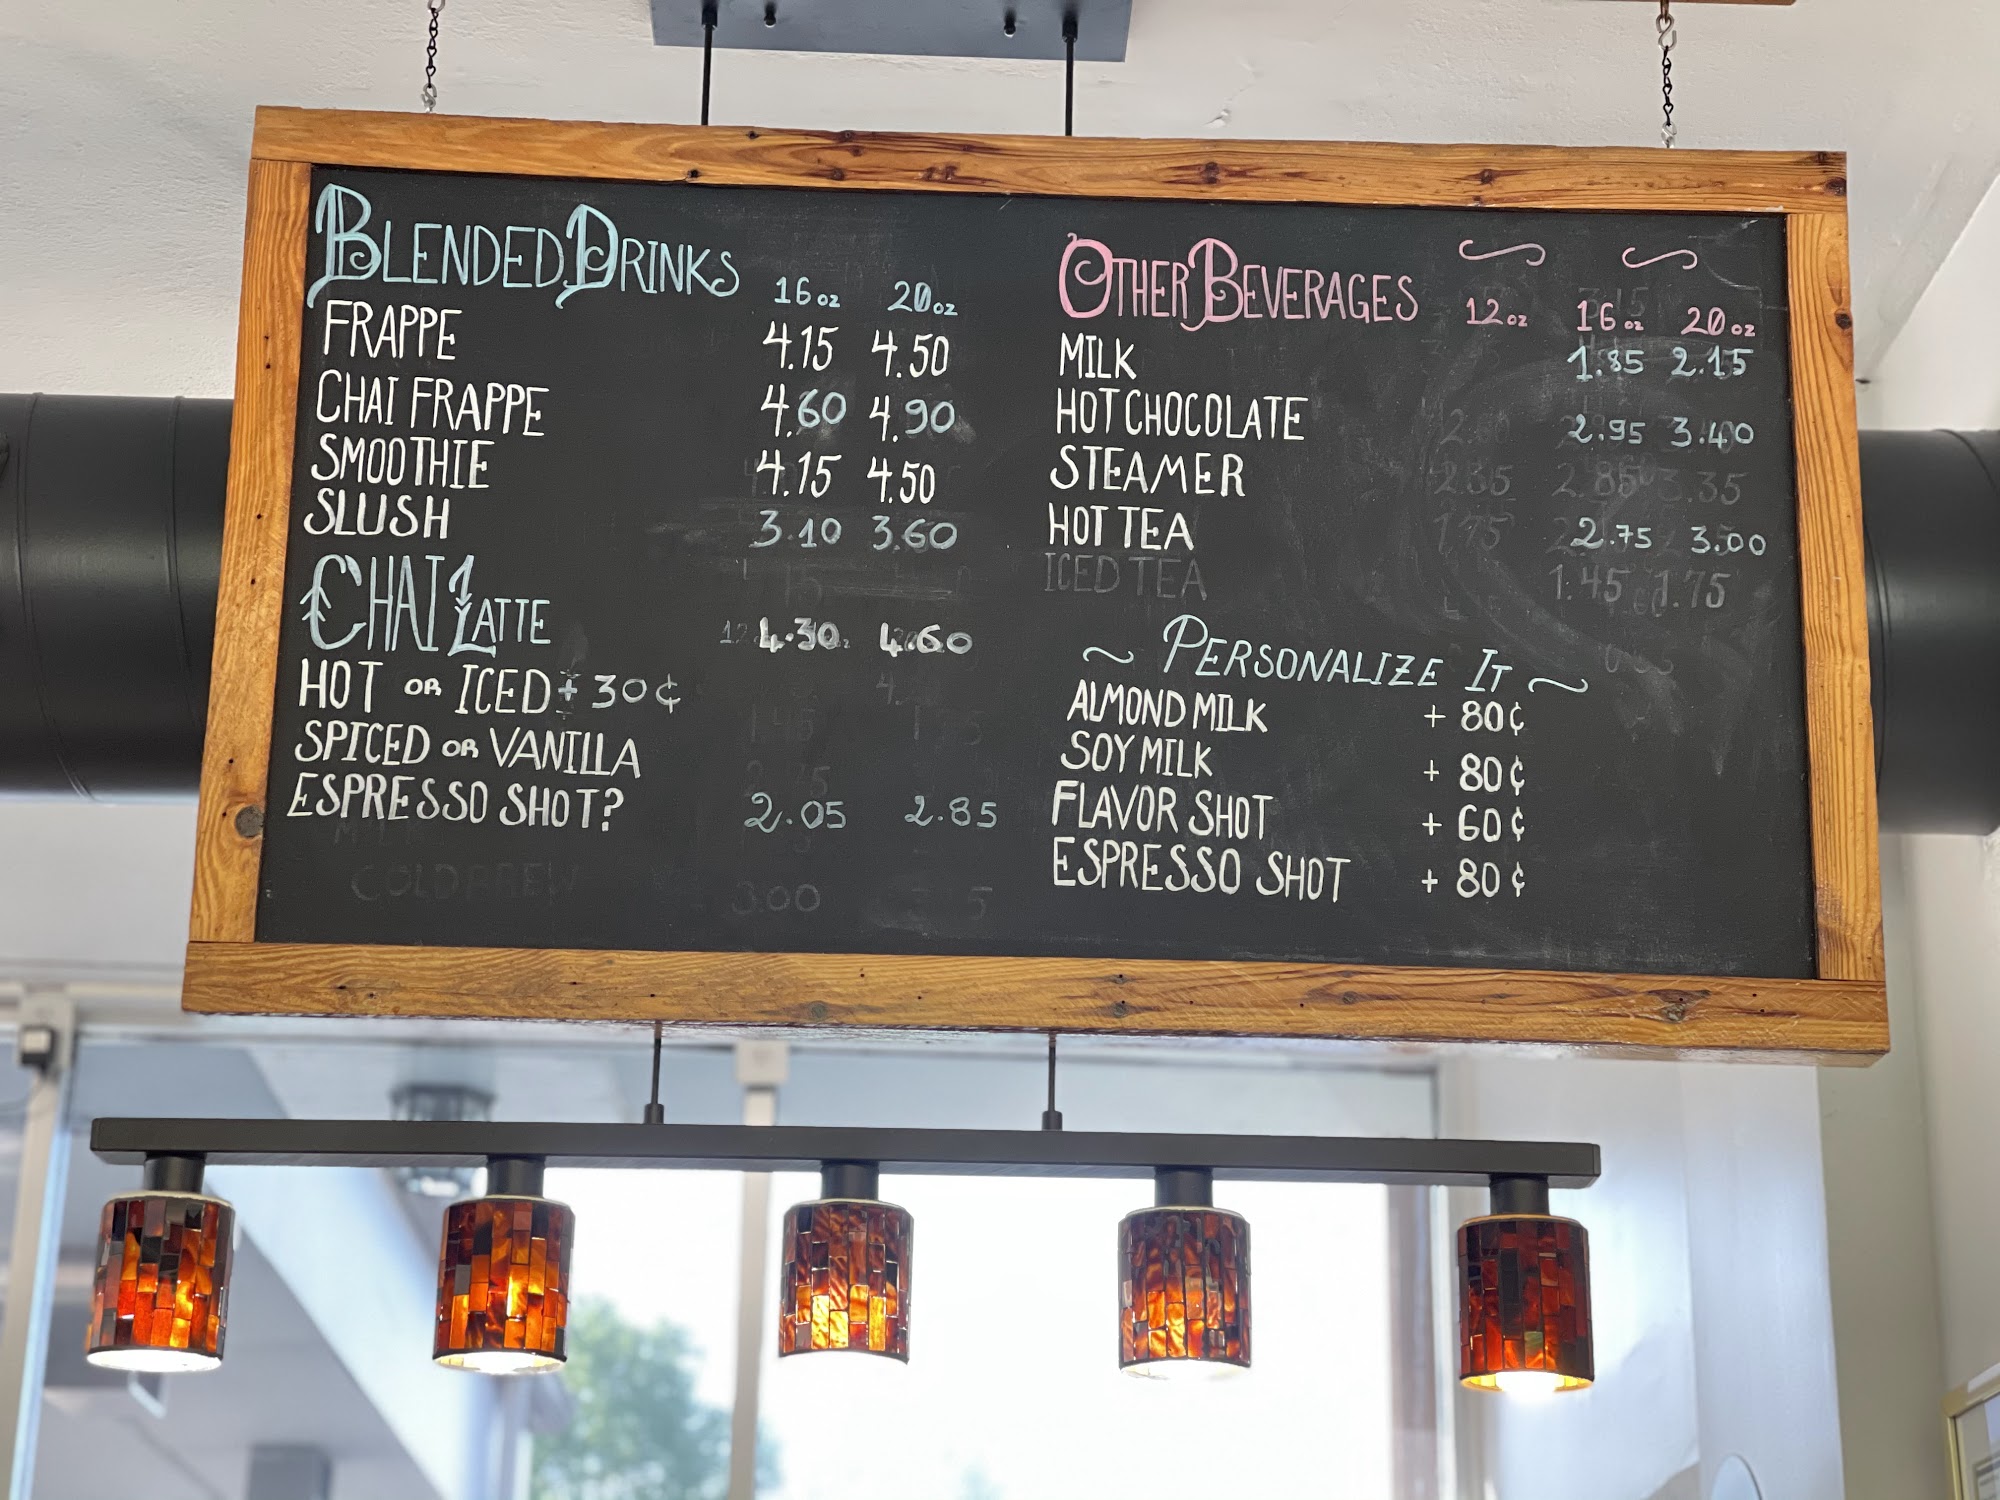 BLENDED DRINKS 16oz 20oz
FRAPPE 4.15 4.50
CHAI FRAPPE 4.60 4.90
SMOOTHIE 4.15 4.50
SLUSH 3.10 3.60
CHAI LATTE 4.30 4.60
HOT OR ICED + 30¢
SPICED OR VANILLA
ESPRESSO SHOT? 2.05 2.85
3.00
OTHER BEVERAGES 12oz 16oz 20oz
MILK 1.85 2.15
HOT CHOCOLATE 2.95 3.40
STEAMER 2.85 3.35
HOT TEA 1.75 2.75 3.00
ICED TEA 1.45 1.75
~ PERSONALIZE IT ~
ALMOND MILK + 80¢
SOY MILK + 80¢
FLAVOR SHOT + 60¢
ESPRESSO SHOT + 80¢